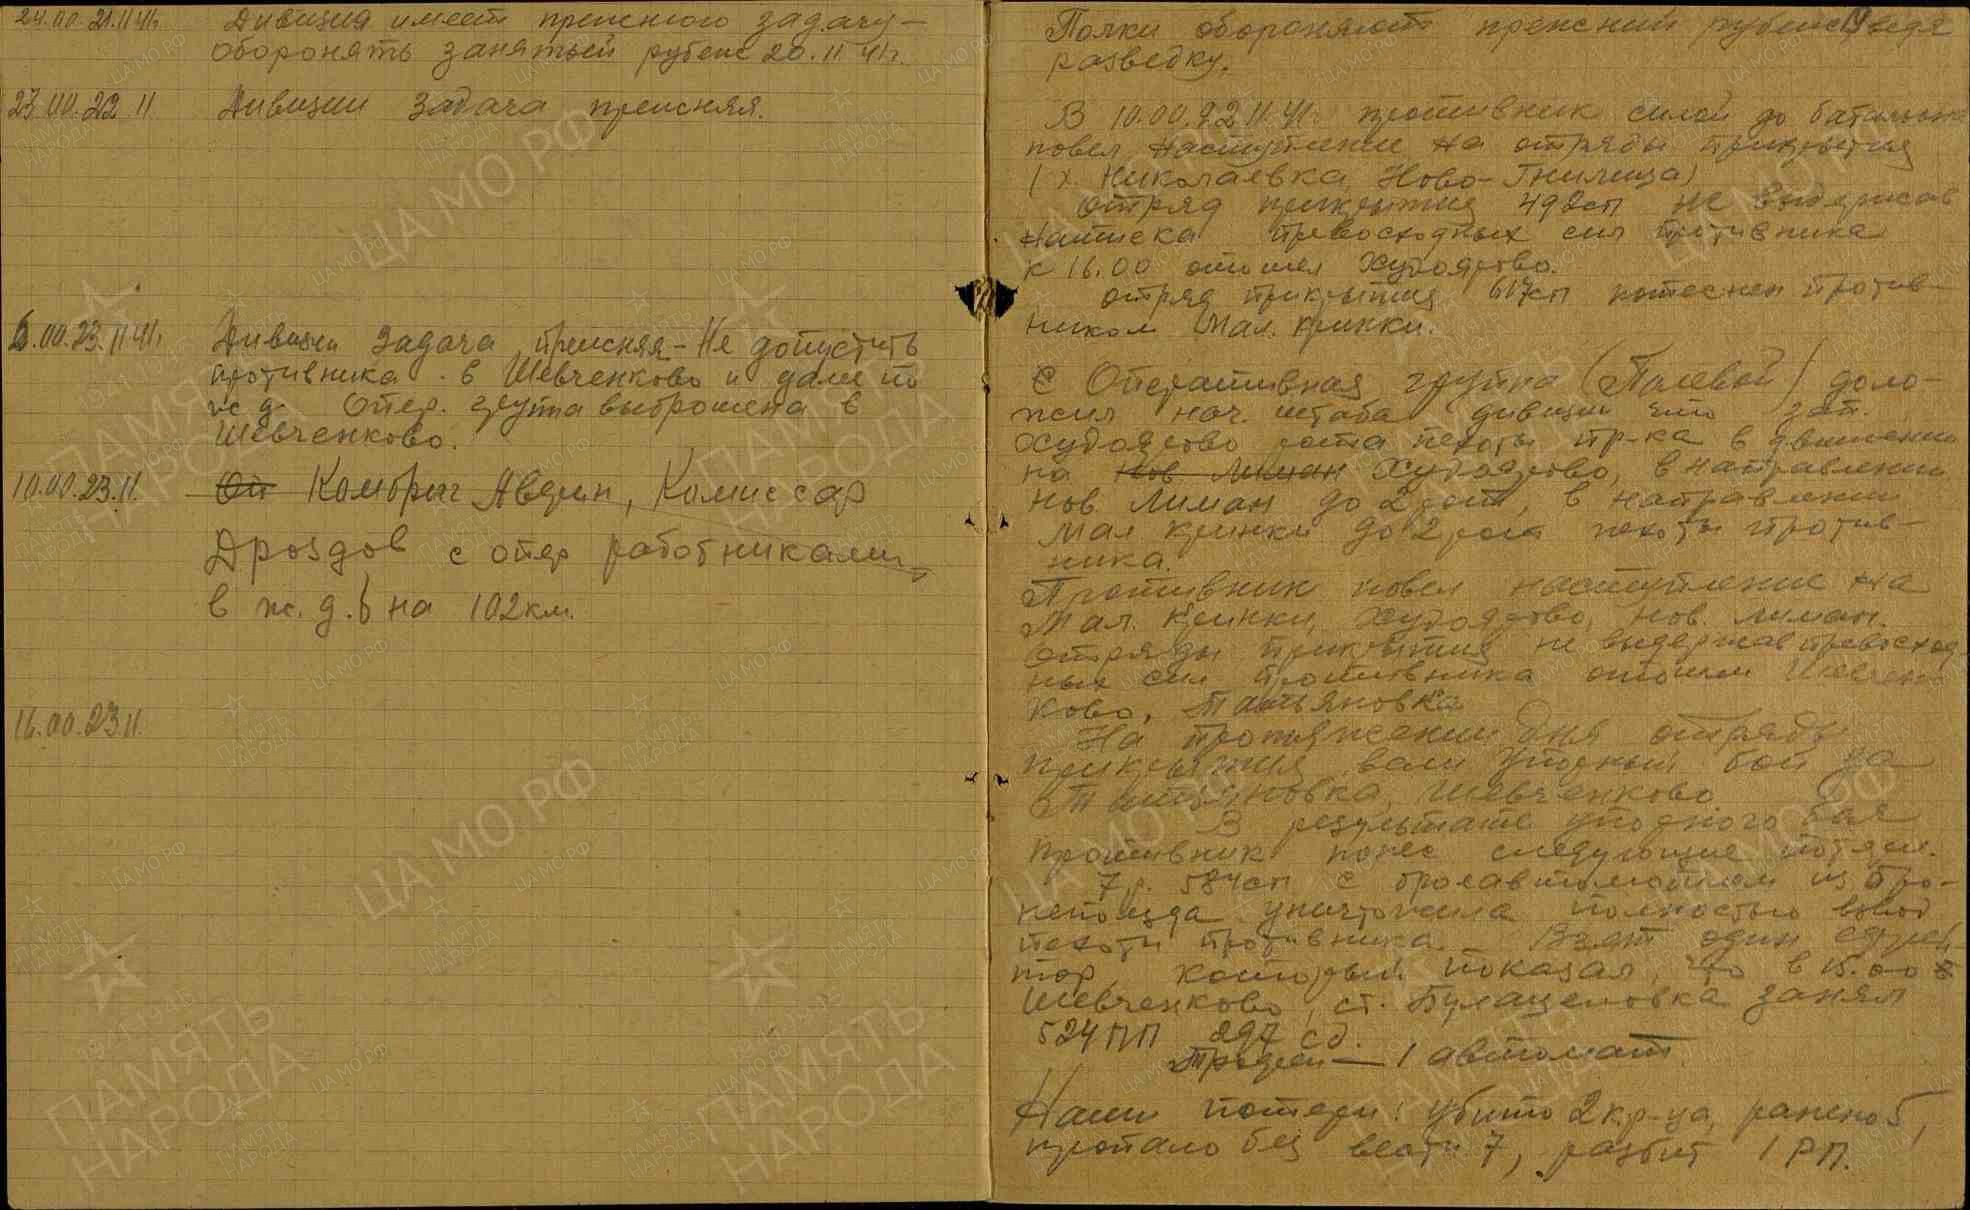 24.00.21.11.41г.
Дивизия имеет прежнюю задачу –
оборонять занятый рубеж 20.11.41г.
23.00.22.11
Дивизии задача прежняя.
6.00.23.11.41г.
Дивизии задача прежняя – Не допустить
противника в Шевченково и далее по
ж.д. Опер. группа выброшена в
Шевченково.
10.00.23.11.
Оп Комбриг Авдеин, Комиссар
Дроздов с опер работниками
в ж.д.б на 102 км.
16.00.23.11.
Полки обороняют прежний рубеж ведя
разведку.
В 10.00.22.11.41г. противник силой до батальона
повел наступление на отряды прикрытия
(х. Николаевка, Ново-Гнилица)
Отряд прикрытия 492сп не выдержав
натиска превосходных сил противника
к 16.00 отошел Худоярово.
отряд прикрытия 617сп потеснен против-
ником Мал. Кринки.
С Оперативная группа (Полевой) доло-
жил нач. штаба дивизии что зап.
Худоярово рота пехоты пр-ка в движении
на Нов Лиман Худоярово, в направлении
Нов. Лиман до 2 рот, в направлении
Мал Кринки до 2 рот пехоты против-
ника.
Противник повел наступление на
Мал. Кринки, Худоярово, Нов. Лиман.
Отряды прикрытия не выдержав превосход-
ных сил противника отошли Шевчен-
ково, Татьяновка
На протяжении дня отряды
прикрытия вели упорный бой за
Татьяновка, Шевченково.
В результате упорного боя
противник понес следующие потери.
7 р. 584сп с из бро-
непоезда уничтожила полностью взвод
пехоты противника. Взят один ефрей-
тор, который показал, что в 15.00 в
Шевченково, ст. Булацеловка занял
524 ПП 297 сд.
Трофеи – 1 автомат.
Наши потери: убито 2 кр-ца, ранено 5,
пропало без вести 7, разбит 1 РП.
ПАМЯТЬ
НАРОДА
ЦА МО РФ